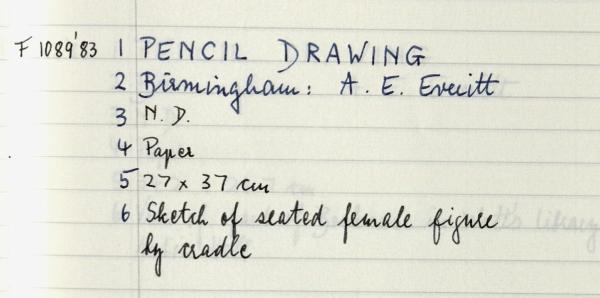 F 1089'83 1 PENCIL DRAWING
2 Birmingham: A. E. Everitt
3 N. D.
4 Paper
5 27 x 37 cm
6 Sketch of seated female figure
by cradle